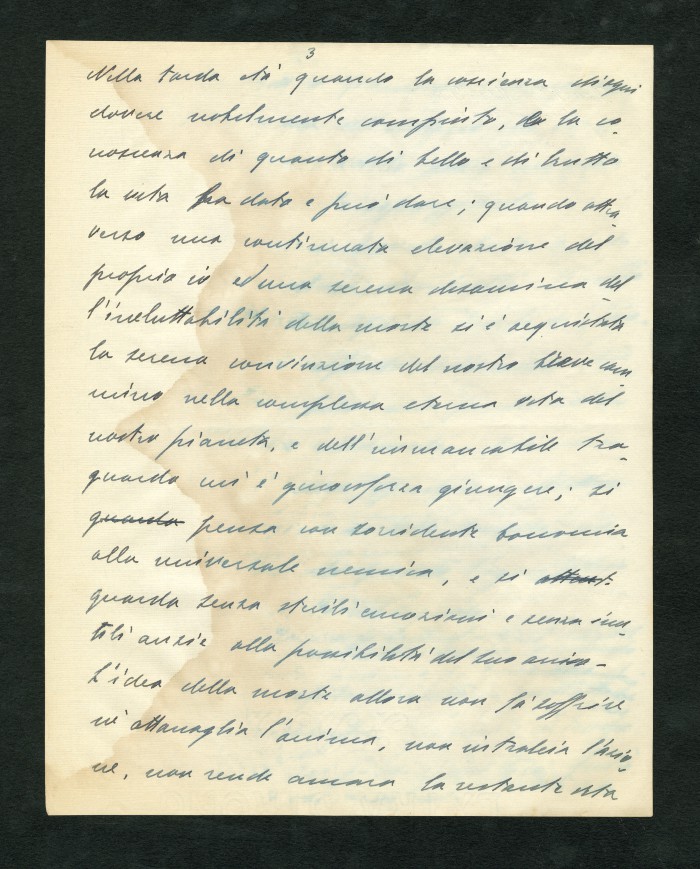 3
Nella tarda età quando la coscienza di ogni
dovere nobilmente compiuto, la co-
noscenza di quanto di bello e di brutto
la vita ha dato e può dare; quando attra-
verso una continuata elevazione del
proprio io ed una serena disamina del-
l'ineluttabilità della morte si è acquistata
la serena convinzione del nostro breve cam
mino nella complessa eterna vita del
nostro pianeta, e dell'immancabile tra-
guardo cui è giuocoforza giungere; si
guarda pensa con sorridente bonomia
alla universale nemica, e si
guarda senza sterili emozioni e senza inu-
tili ansie alla possibilità del suo arrivo-
L'idea della morte allora non fa soffrire
nè attanaglia l'anima, non intralcia l'azio-
ne, non rende amara la restante vita